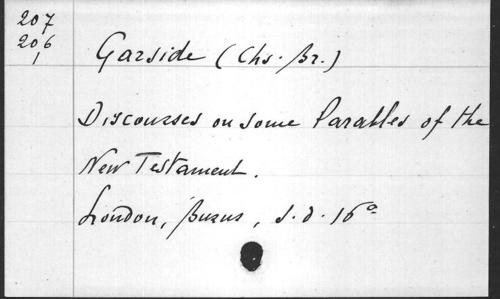 207
206
1
Garside (Chs. Br.)
Discourses on some Parables of the
New Testament.
London, Burns, s.d. 16°